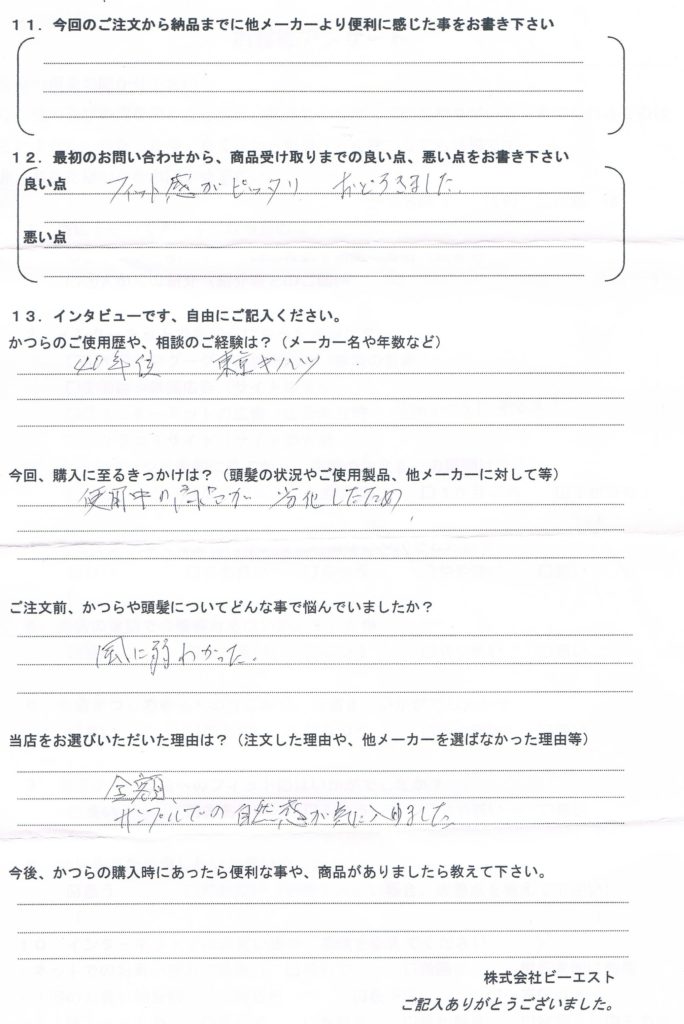 11．今回のご注文から納品までに他メーカーより便利に感じた事をお書き下さい
12．最初のお問い合わせから、商品受け取りまでの良い点、悪い点をお書き下さい
良い点 フィット感がピッタリ おどろきました.
悪い点
13．インタビューです、自由にご記入ください。
かつらのご使用歴や、相談のご経験は？（メーカー名や年数など）
40年位 東京
今回、購入に至るきっかけは？（頭髪の状況やご使用製品、他メーカーに対して等）
使用中の商品が 劣化したため
ご注文前、かつらや頭髪についてどんな事で悩んでいましたか？
風に弱わかった.
当店をお選びいただいた理由は？（注文した理由や、他メーカーを選ばなかった理由等）
金額、
サンプルでの自然感が気に入りました。
今後、かつらの購入時にあったら便利な事や、商品がありましたら教えて下さい。
株式会社ビーエスト
ご記入ありがとうございました。